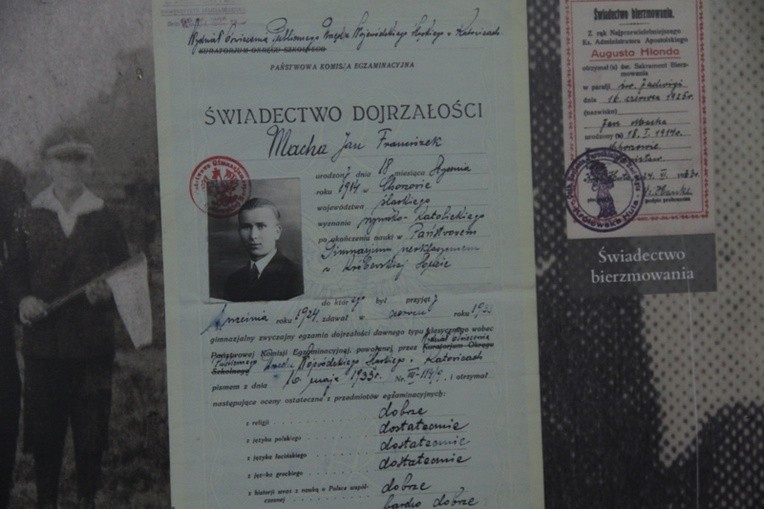 Wydział Oświecenia Publicznego Urzędu Wojewódzkiego Śląskiego w Katowicach
KURATORIUM OKRĘGU SZKOLNEGO
PAŃSTWOWA KOMISJA EGZAMINACYJNA
ŚWIADECTWO DOJRZAŁOŚCI
Macha Jan Franciszek
urodzony dnia 18 miesiąca stycznia
roku 1914 w Chorzowie
województwa śląskiego
wyznania rzymsko-katolickiego
po ukończeniu nauki w Państwowem
Gimnazjum neoklasycznem
w Królewskiej Hucie
do którego był przyjęty
września roku 1924, zdawał w czerwcu roku 1933
gimnazjalny zwyczajny egzamin dojrzałości dawnego typu klasycznego wobec
Państwowej Komisji Egzaminacyjnej, powołanej przez Kuratorium Okręgu Wydział Oświecenia
Szkolnego Publicznego Urzędu Wojewódzkiego Śląskiego w Katowicach
pismem z dnia 10 maja 1933 r. Nr. i otrzymał
następujące oceny ostateczne z przedmiotów egzaminacyjnych:
z religii dobrze
z języka polskiego dostatecznie
z języka łacińskiego dostatecznie
z języka greckiego dostatecznie
z historji wraz z nauką o Polsce współ-
czesnej dobrze
bardzo dobrze
Świadectwo bierzmowania.
Z rąk Najprzewielebniejszego
Ks. Administratora Apostolskiego
Augusta Hlonda
otrzymał(a) św. Sakrament Bierz-
mowania
w parafji św. Jadwigi
dnia 16 czerwca 1925 r.
(nazwisko)
Jan Macha
urodzony(a) 18. I. 1914
Chorzowie
podpis proboszcza
Świadectwo
bierzmowania